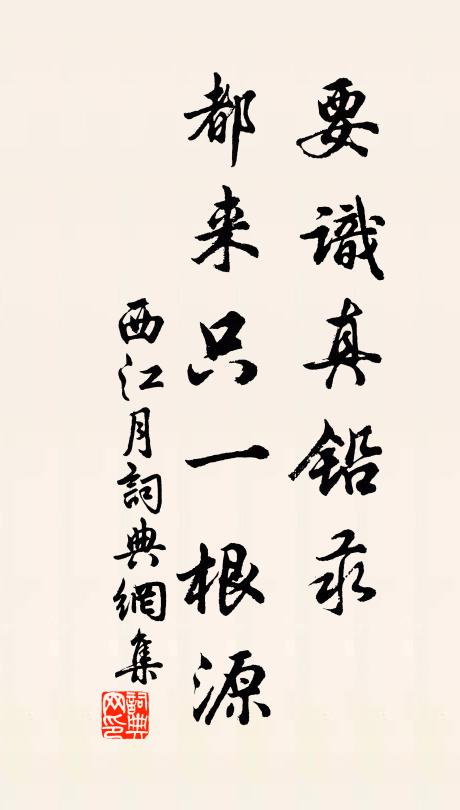 要識真鉛汞
都来只一根源
西江月詞典網集
詞典網印